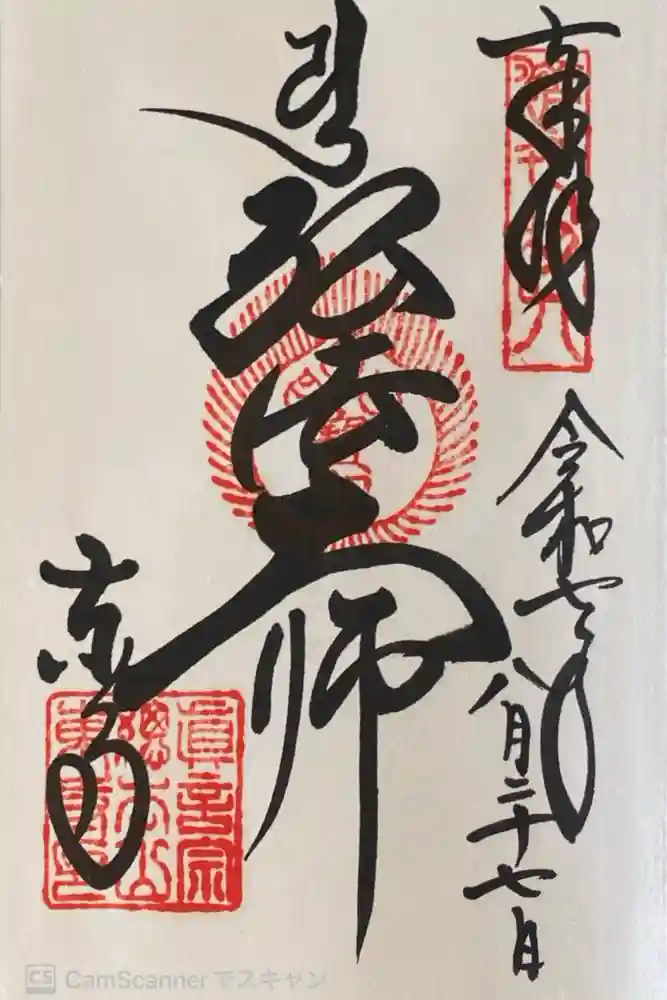 奉拝
令和七年
八月二十七日
弘法大師
東寺
眞言宗
總本山
東寺印
CS CamScannerでスキャン